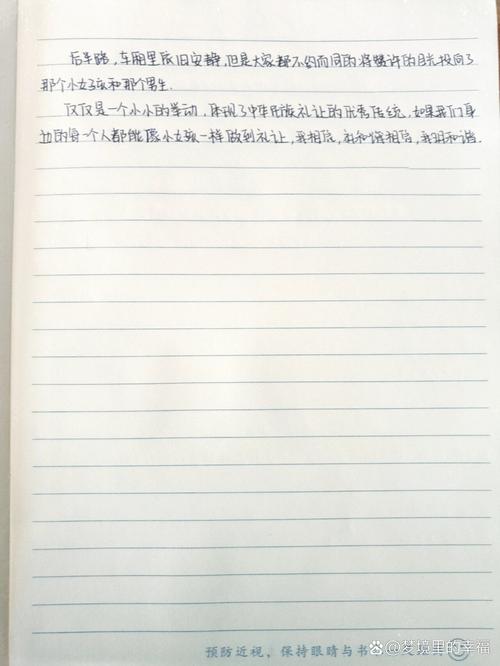 后半路,车厢里依旧安静,但是大家都不约而同的将赞许的目光投向了
那个小女孩和那个男生.
仅仅是一个小小的举动,体现了中华民族礼让的优秀传统.如果我们身
边的每一个人都能像小女孩一样做到礼让,我相信,和谐相信,和谐.
预防近视,保持眼睛与书
@梦境里的幸福